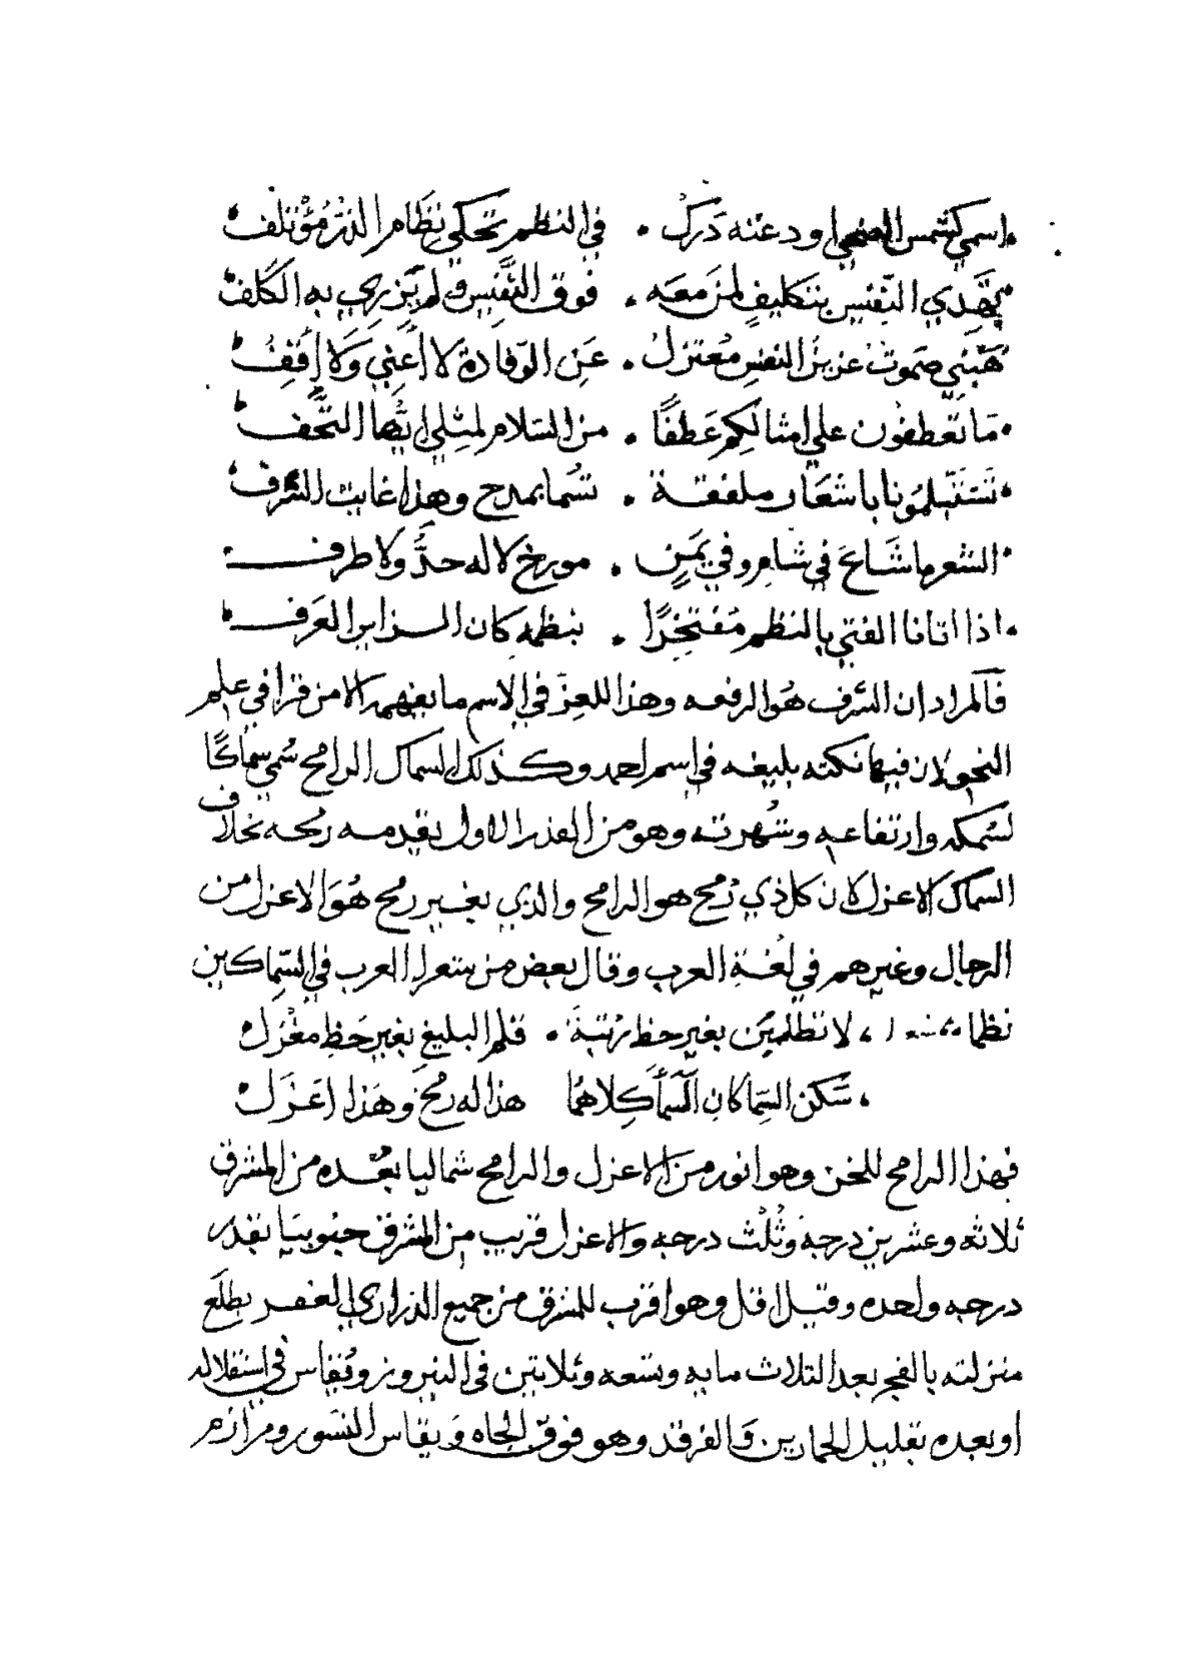 اسمي كشمس الضحي اودعته دَرَكً • في النظم تحكي نظام الدر مُؤتلفُ
يَهْدِي النفيس بتكليفٍ لمن معه • فوق النَّفِيس ولم يَزرِي به الكَلَفُ
هَبْني صَموت عزيز النفس مُعتزلً • عَن الوفادة لا أعني وَلا أقفُ
مَا تَعْطفون علي امثالكم عَطفًا • من السلام لمثلي ايّها التحفُ
تَسْتَقبلونا باشعَار ملفقة • تسُما بمدح وهذا غايت الشرفُ
الشعر ما شَاعَ في شامٍ وفي يَمَنٍ • مورخ لا له حدٌّ ولا طرف
اذا اتانا الفتي بالنظم مُفتخرًا • بنظمه كان الزاير العَرف
فالمراد ان الشرف هُو الرفعه وهذا اللغز في الاسم ما يفهمه الا من قرا في علم
النحو لان فيها نكته بليغه في اسم احمد وكذلك السماك الرامح سُمي سماكًا
لسُمكه وارتفاعه وشهرته وهو من القدر الاول يقدمه رمحه بخلاف
السماك الاعزل لان كل ذي رُمح هو الرامح والذي بغير رمح هُوَ الاعزل من
الرجال وغيرهم في لُغة العرب وقال بعض من شعرا العرب في السِّماكين
نظما شعرا، لا تطلبَن بغير حظ رُتبةً • قلم البليغ بغير حَظ مغْزل
، سَكن السِّماكانِ السَّمَا كِلاهُما هذا له رمحٌ وهَذا اعَزَل
فهذا الرامح للخن وهو انور من الاعزل والرامح شماليا بُعْده من المشرق
ثلاثه وعشرين درجة وثُلْث درجه والاعزل قريب من المشرق جنُوبيَا بقدر
درجه واحده وقيل اقل وهو اقرب للمشرق من جميع الدراري الغفر يطلَع
منزلته بالفجر بعد الثلاث مايه وتسعه وثلاثين في النيروز ويُقاس في استقلاله
او بعده بقليل الحمارين والفرقد وهو فوق الجاه وَيقاس النسور ومرازم